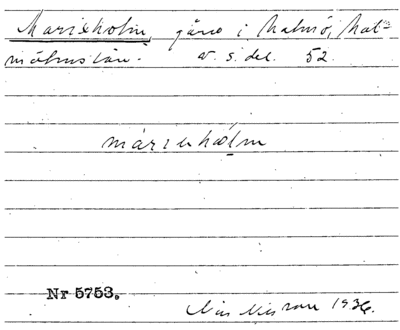 Marieholm, gård i Malmö, Mal-
möhus län. av s. del. 52.
màriehòlm
Nr 5753.
Nils 1936.